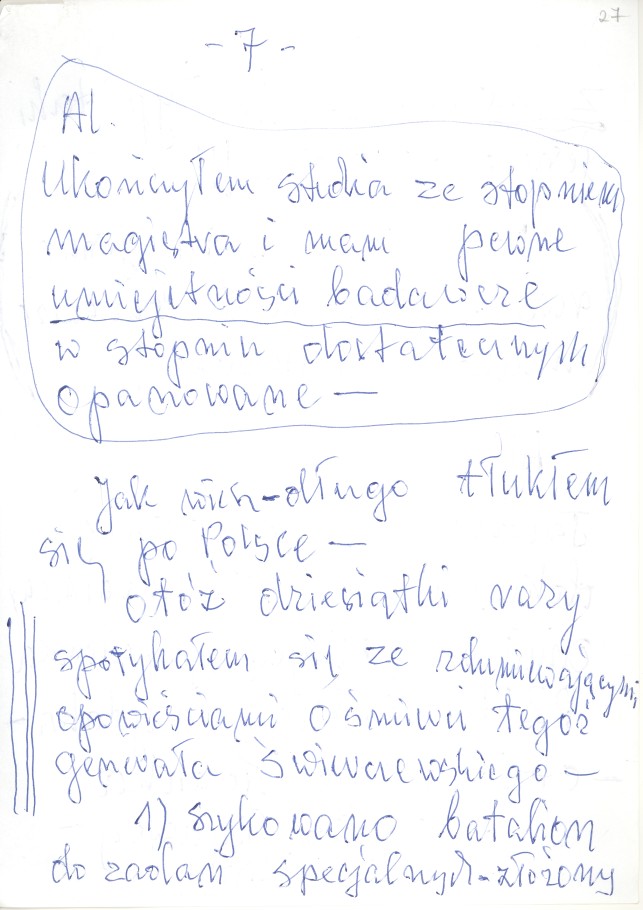 27
- 7 -
Al.
Ukończyłem studia ze stopniem
magistra i mam pewne
umiejętności badawcze
w stopniu dostatecznym
opanowane —
Jak długo tłukłem
się po Polsce —
otóż dziesiątki razy
spotykałem się ze zdumiewającymi
opowieściami o śmierci tegoż
generała Świerczewskiego —
1) szykowano batalion
do zadań specjalnych - złożony